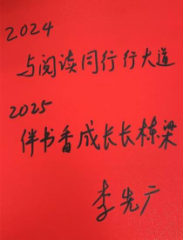 2024
与阅读同行行大道
2025
伴书香成长长栋梁
李先广